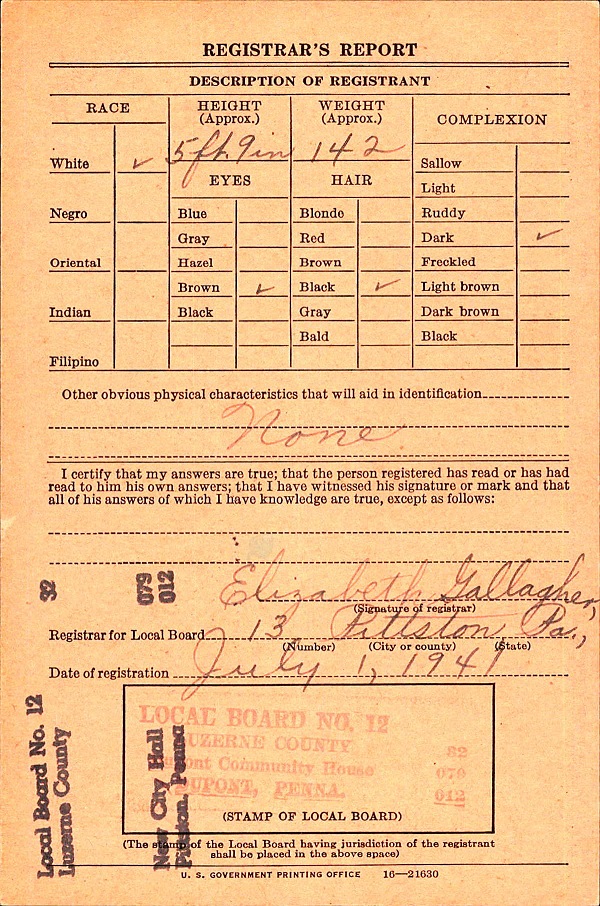 REGISTRAR'S REPORT
DESCRIPTION OF REGISTRANT
RACE
HEIGHT
(Approx.)
WEIGHT
(Approx.)
COMPLEXION
5 ft. 9 in
142
White ✓
Negro
Oriental
Indian
Filipino
EYES
Blue
Gray
Hazel
Brown ✓
Black
HAIR
Blonde
Red
Brown
Black ✓
Gray
Bald
Sallow
Light
Ruddy
Dark ✓
Freckled
Light brown
Dark brown
Black
Other obvious physical characteristics that will aid in identification
None
I certify that my answers are true; that the person registered has read or has had
read to him his own answers; that I have witnessed his signature or mark and that
all of his answers of which I have knowledge are true, except as follows:
Elizabeth Gallagher,
(Signature of registrar)
Registrar for Local Board 13 Pittston Pa.,
(Number) (City or county) (State)
Date of registration July 1, 1941
LOCAL BOARD NO. 12
LUZERNE COUNTY 32
Dupont Community House 079
DUPONT, PENNA. 012
(STAMP OF LOCAL BOARD)
(The stamp of the Local Board having jurisdiction of the registrant
shall be placed in the above space)
U. S. GOVERNMENT PRINTING OFFICE 16—21630
Local Board No. 12 32
Luzerne County
New City Hall 079
Pittston, Penna 012